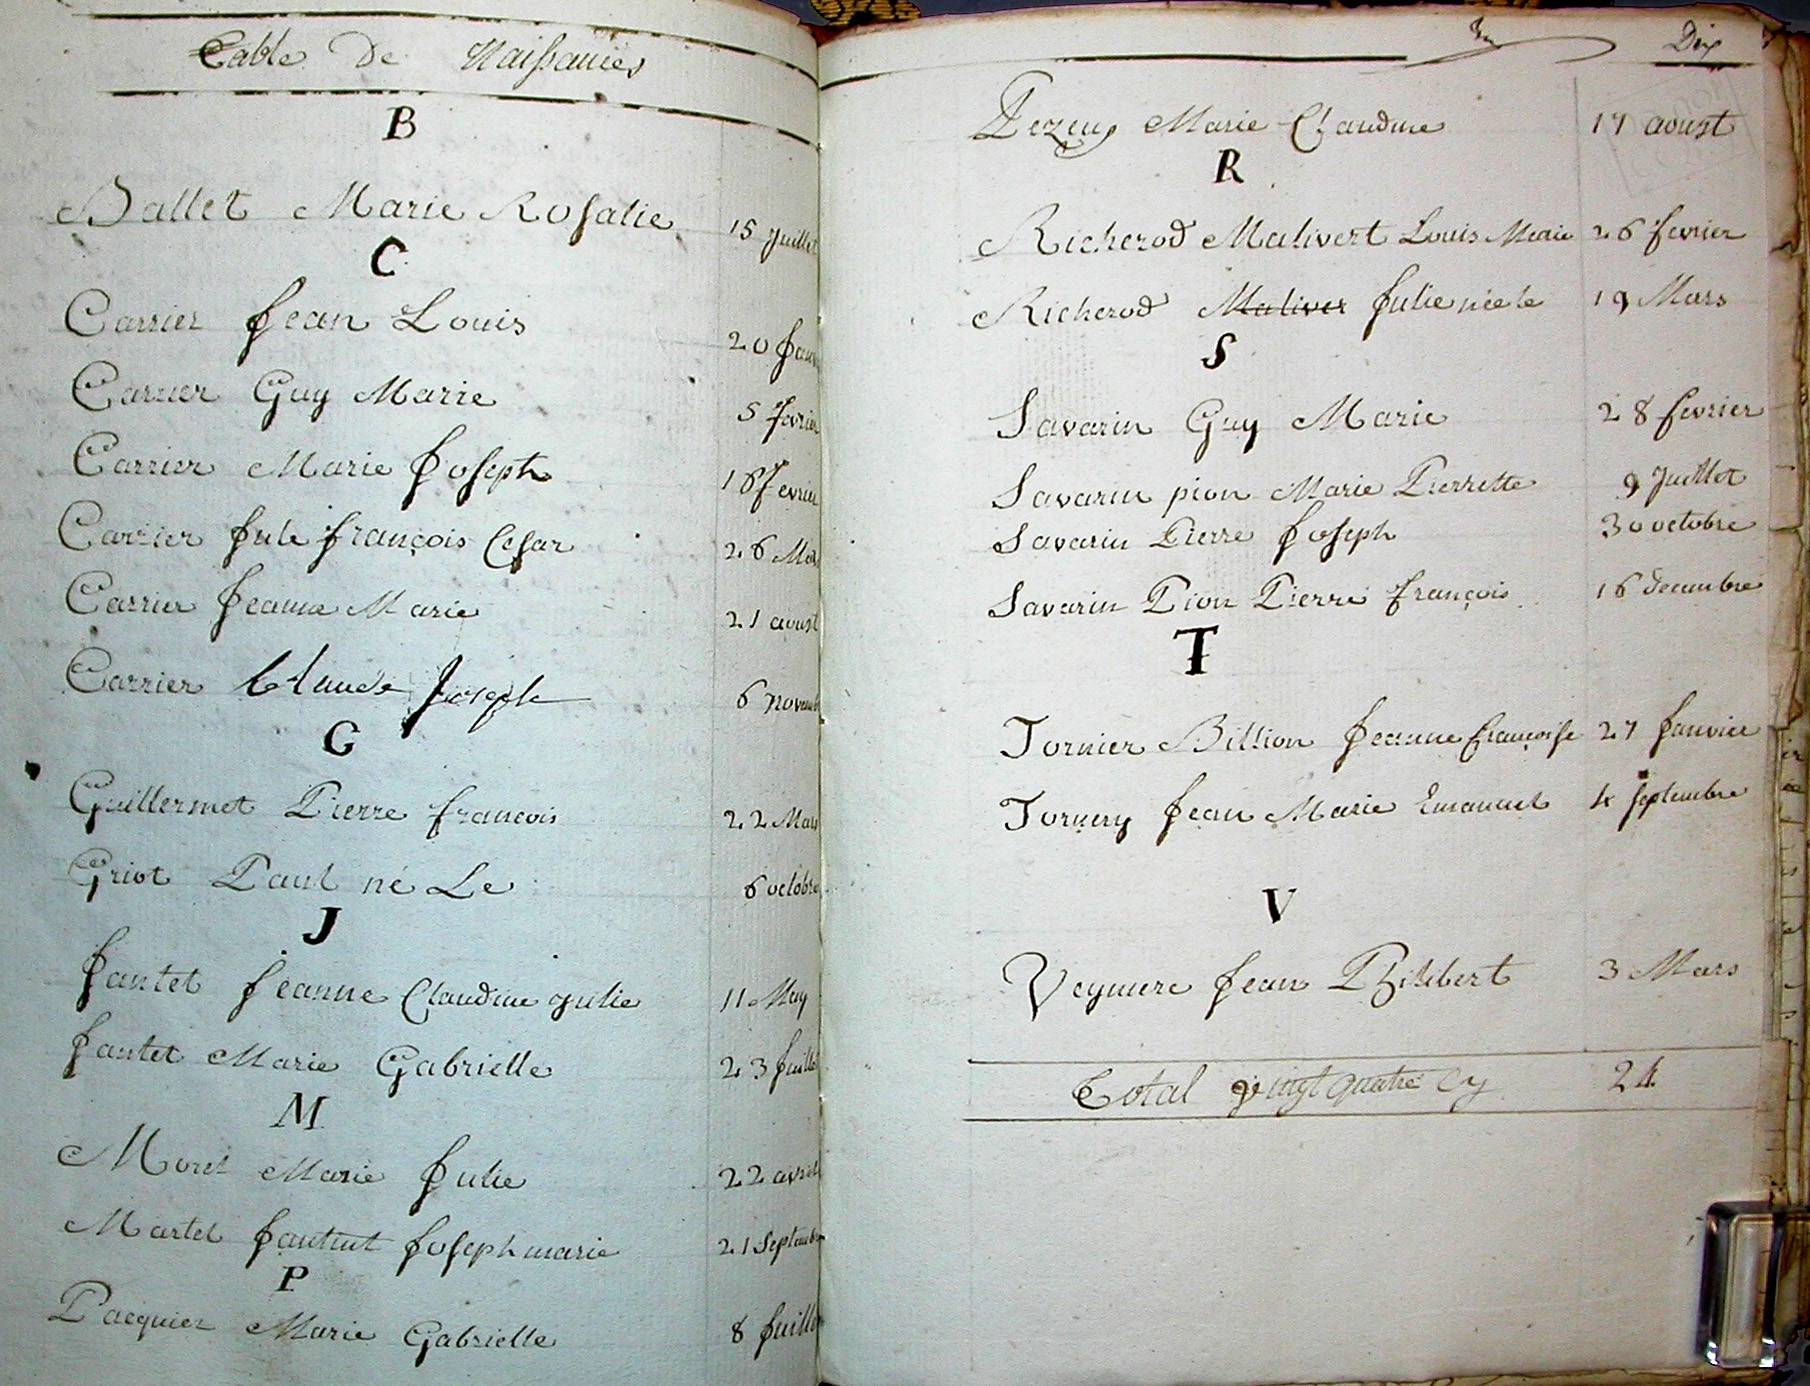 Table De Naissances
B
Ballet Marie Rosalie 15 Juillet
C
Carrier Jean Louis 20 Janv
Carrier Guy Marie 5 fevrier
Carrier Marie Joseph 18 fevrier
Carrier Jule françois Cesar 26 Mars
Carrier Jeanne Marie 21 aoust
Carrier Claude Joseph 6 novemb
G
Guillermet Pierre francois 22 Mars
Griot Paul né Le 6 octobre
J
Jantet Jeanne Claudine Julie 11 May
Jantet Marie Gabrielle 23 Juillet
M
Moret Marie Julie 22 avril
Martel Jantet Joseph marie 21 Septembre
P
Pacquier Marie Gabrielle 8 Juillet
Dix
Marie Claudine 17 aoust
R
Richerod Malivert Louis Marie 26 fevrier
Richerod Maliver Julie née le 19 Mars
S
Savarin Guy Marie 28 fevrier
Savarin pion Marie Pierrette 9 Juillet
Savarin Pierre Joseph 30 octobre
Savarin Pion Pierre françois 16 decembre
T
Tornier Billion Jeanne françoise 27 Janvier
Tornery Jean Marie Emanuel 4 septembre
V
Veyniere Jean Philibert 3 Mars
Total vingt quatre Cy 24